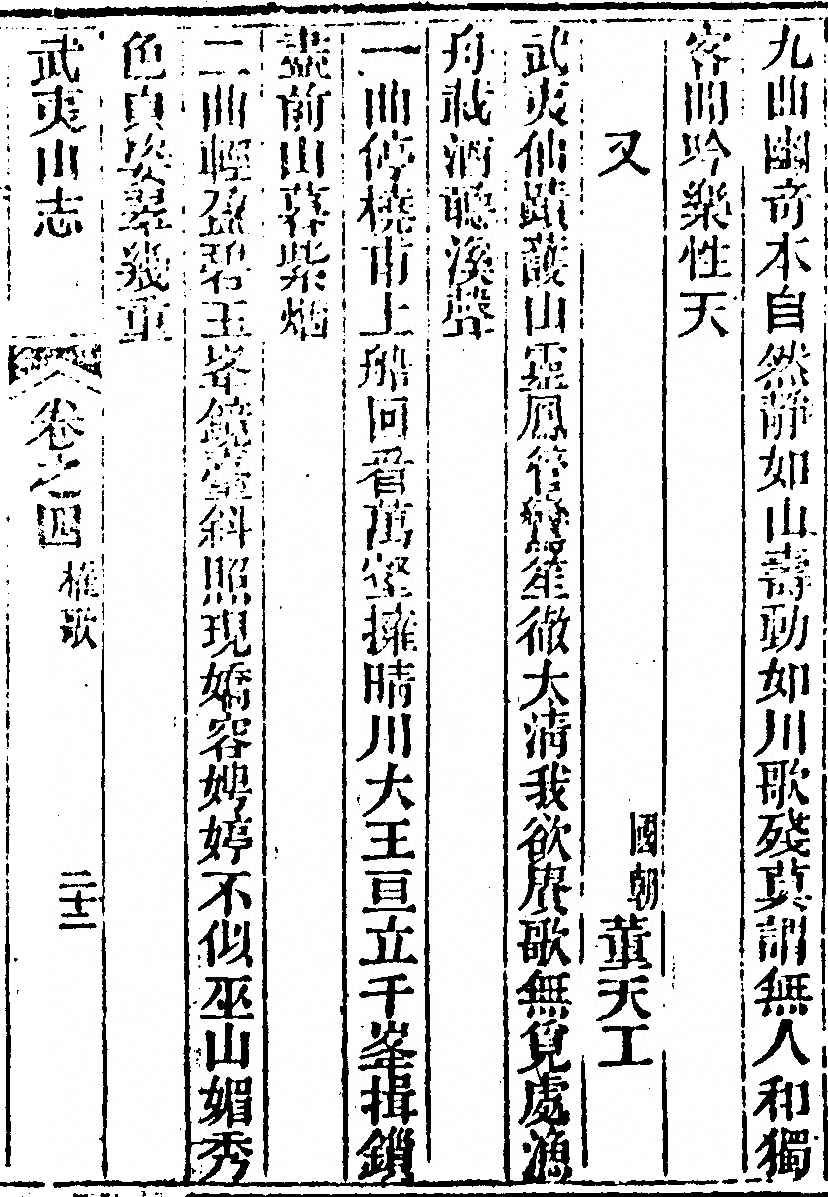 九曲幽奇本自然靜如山壽動如川歌殘莫謂無人和獨
客間吟樂性天
又
國朝董天工
武夷仙蹟護山靈鳳管鸞笙徹太清我欲賡歌無覓處漁
舟載酒聽溪聲
一曲停橈市上船回看萬壑擁晴川大王亘立千峯揖鎖
盡前山暮紫烟
二曲輕盈碧玉峯鏡臺斜照現嬌容娉婷不似巫山媚秀
色真姿翠幾重
武夷山志
卷之四
櫂歌
二十二